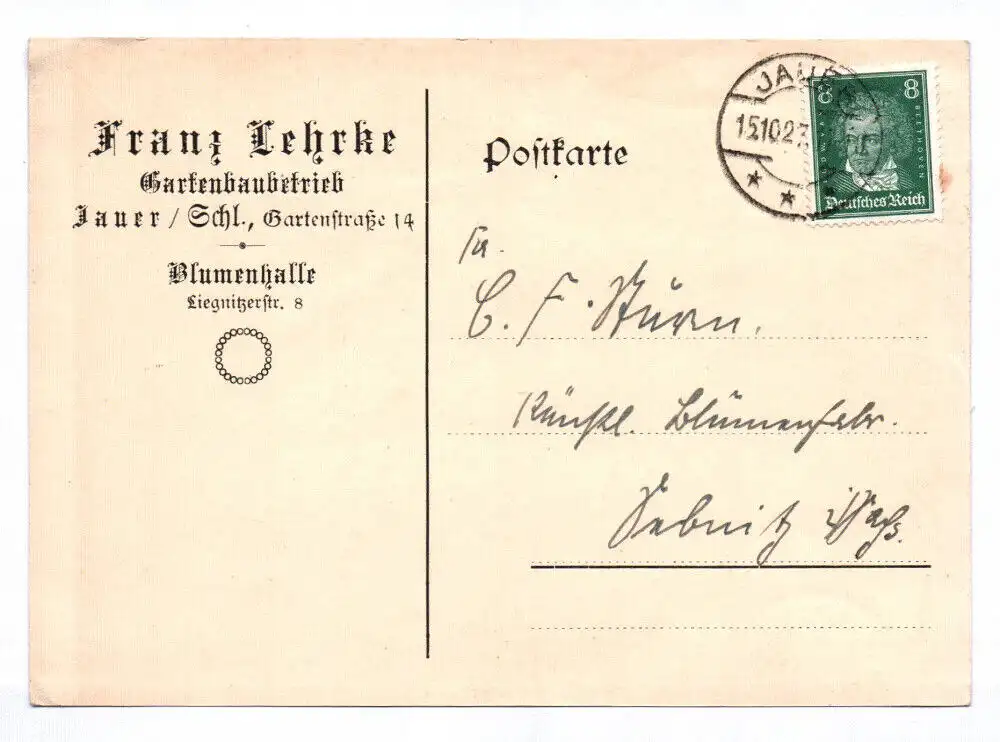 Franz Lehrke
Gartenbaubetrieb
Jauer / Schl., Gartenstraße 14
Blumenhalle
Liegnitzerstr. 8
Postkarte
JAUER
15.10.2
8 8
LUDWIG VAN BEETHOVEN
Deutsches Reich
C. F. Sturm.
Künstl. Blümenfabr.
Sebnitz i/Sachs.